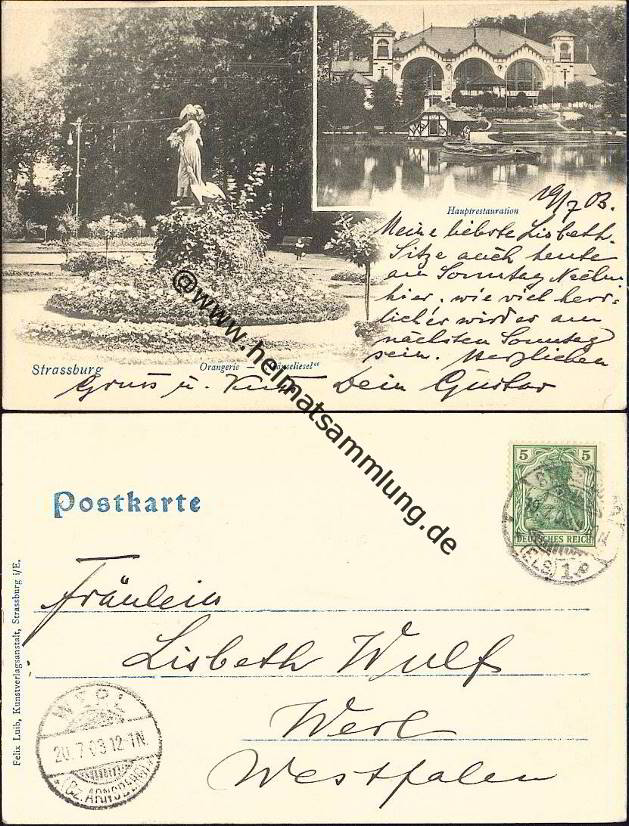 Hauptrestauration
19/7 03.
Meine liebste Lisbeth.
Sitze auch heute
am Sonntag Nachm
hier, wie viel herr-
licher wird es am
nächsten Sonntag
sein. Herzlichen
Strassburg
Orangerie — „Gänseliesel"
Gruss u. Kuss Dein Gustav
@www.heimatsammlung.de
Postkarte
5 5
DEUTSCHES REICH
ELS. 1
Fräulein
Lisbeth Wulf
Werl
Westfalen
WERL
20.7.03.12-1N.
(BZ. ARNSBERG)
Felix Luib, Kunstverlagsanstalt, Strassburg i/E.